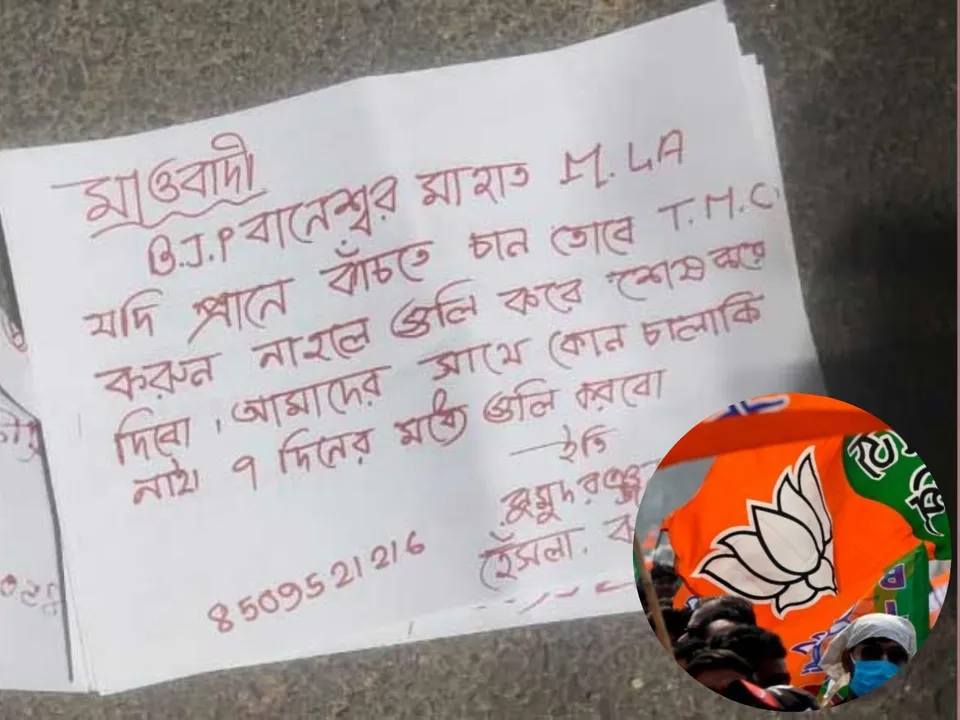 মাওবাদী
B.J.P বানেশ্বর মাহাত M.LA
যদি প্রানে বাঁচতে চান তোবে T.M.C
করুন নাহলে গুলি করে শেষ করে
দিবো। আমাদের সাথে কোন চালাকি
নাই। ৭ দিনের মধ্যে গুলি করবো
ইতি
হেঁসলা.
8509521216